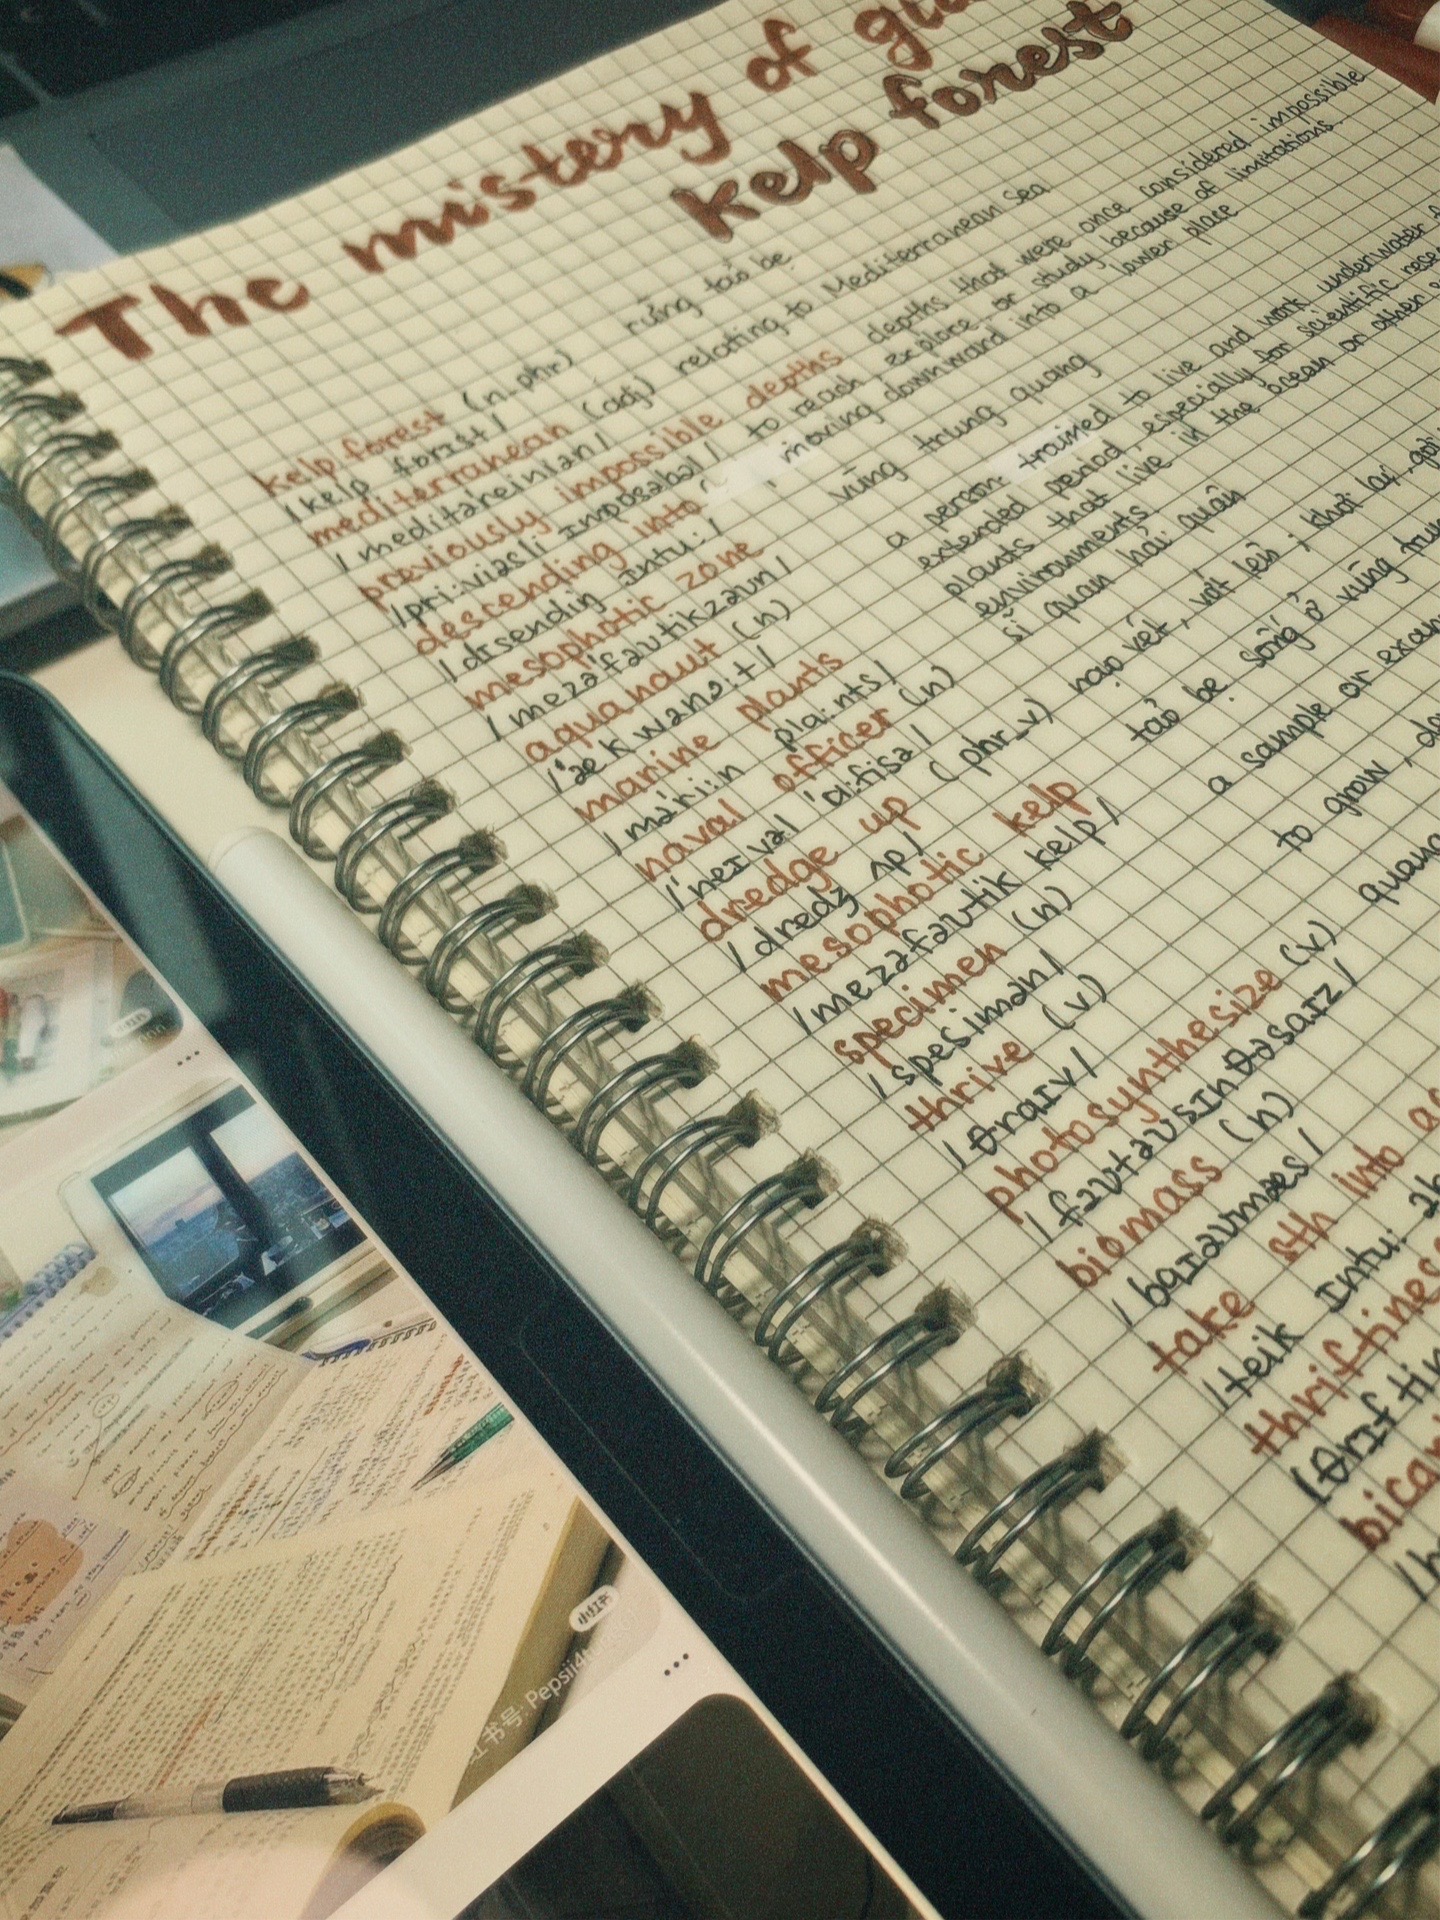 The mistery of
kelp forest
kelp forest (n.phr) rừng tảo bẹ
/kelp forist/
mediterranean (adj) relating to Mediterranean Sea
/meditəreiniən/
previously impossible depths depths that were once considered impossible
/pri:viəsli impɒsəbəl/ to reach, explore, or study because of limitations
descending into moving downward into a lower place
/dɪsendiŋ ɪntu:/
mesophotic zone vùng trung quang
/mezə'fəʊtikzəʊn/
aquanaut (n) a person trained to live and work underwater
/'ækwənɔ:t/ extended period especially for scientific
marine plants plants that live in the ocean or other
/məri:n pla:nts/ environments
naval officer (n) sĩ quan hải quân
/'neɪvəl 'ɒfisə/
dredge up (phr_v) nạo vét, vớt lên; khơi lại, gợi
/dredʒ ʌp/
mesophotic kelp tảo bẹ sống ở vùng
/mezəfəʊtik kelp/
specimen (n) a sample or
/spesimən/
thrive (v) to grow,
/θraɪv/
photosynthesize (v) quang
/fəʊtəʊsɪnθəsaɪz/
biomass (n)
/baɪəʊmæs/
take sth into
/teik ɪntu: